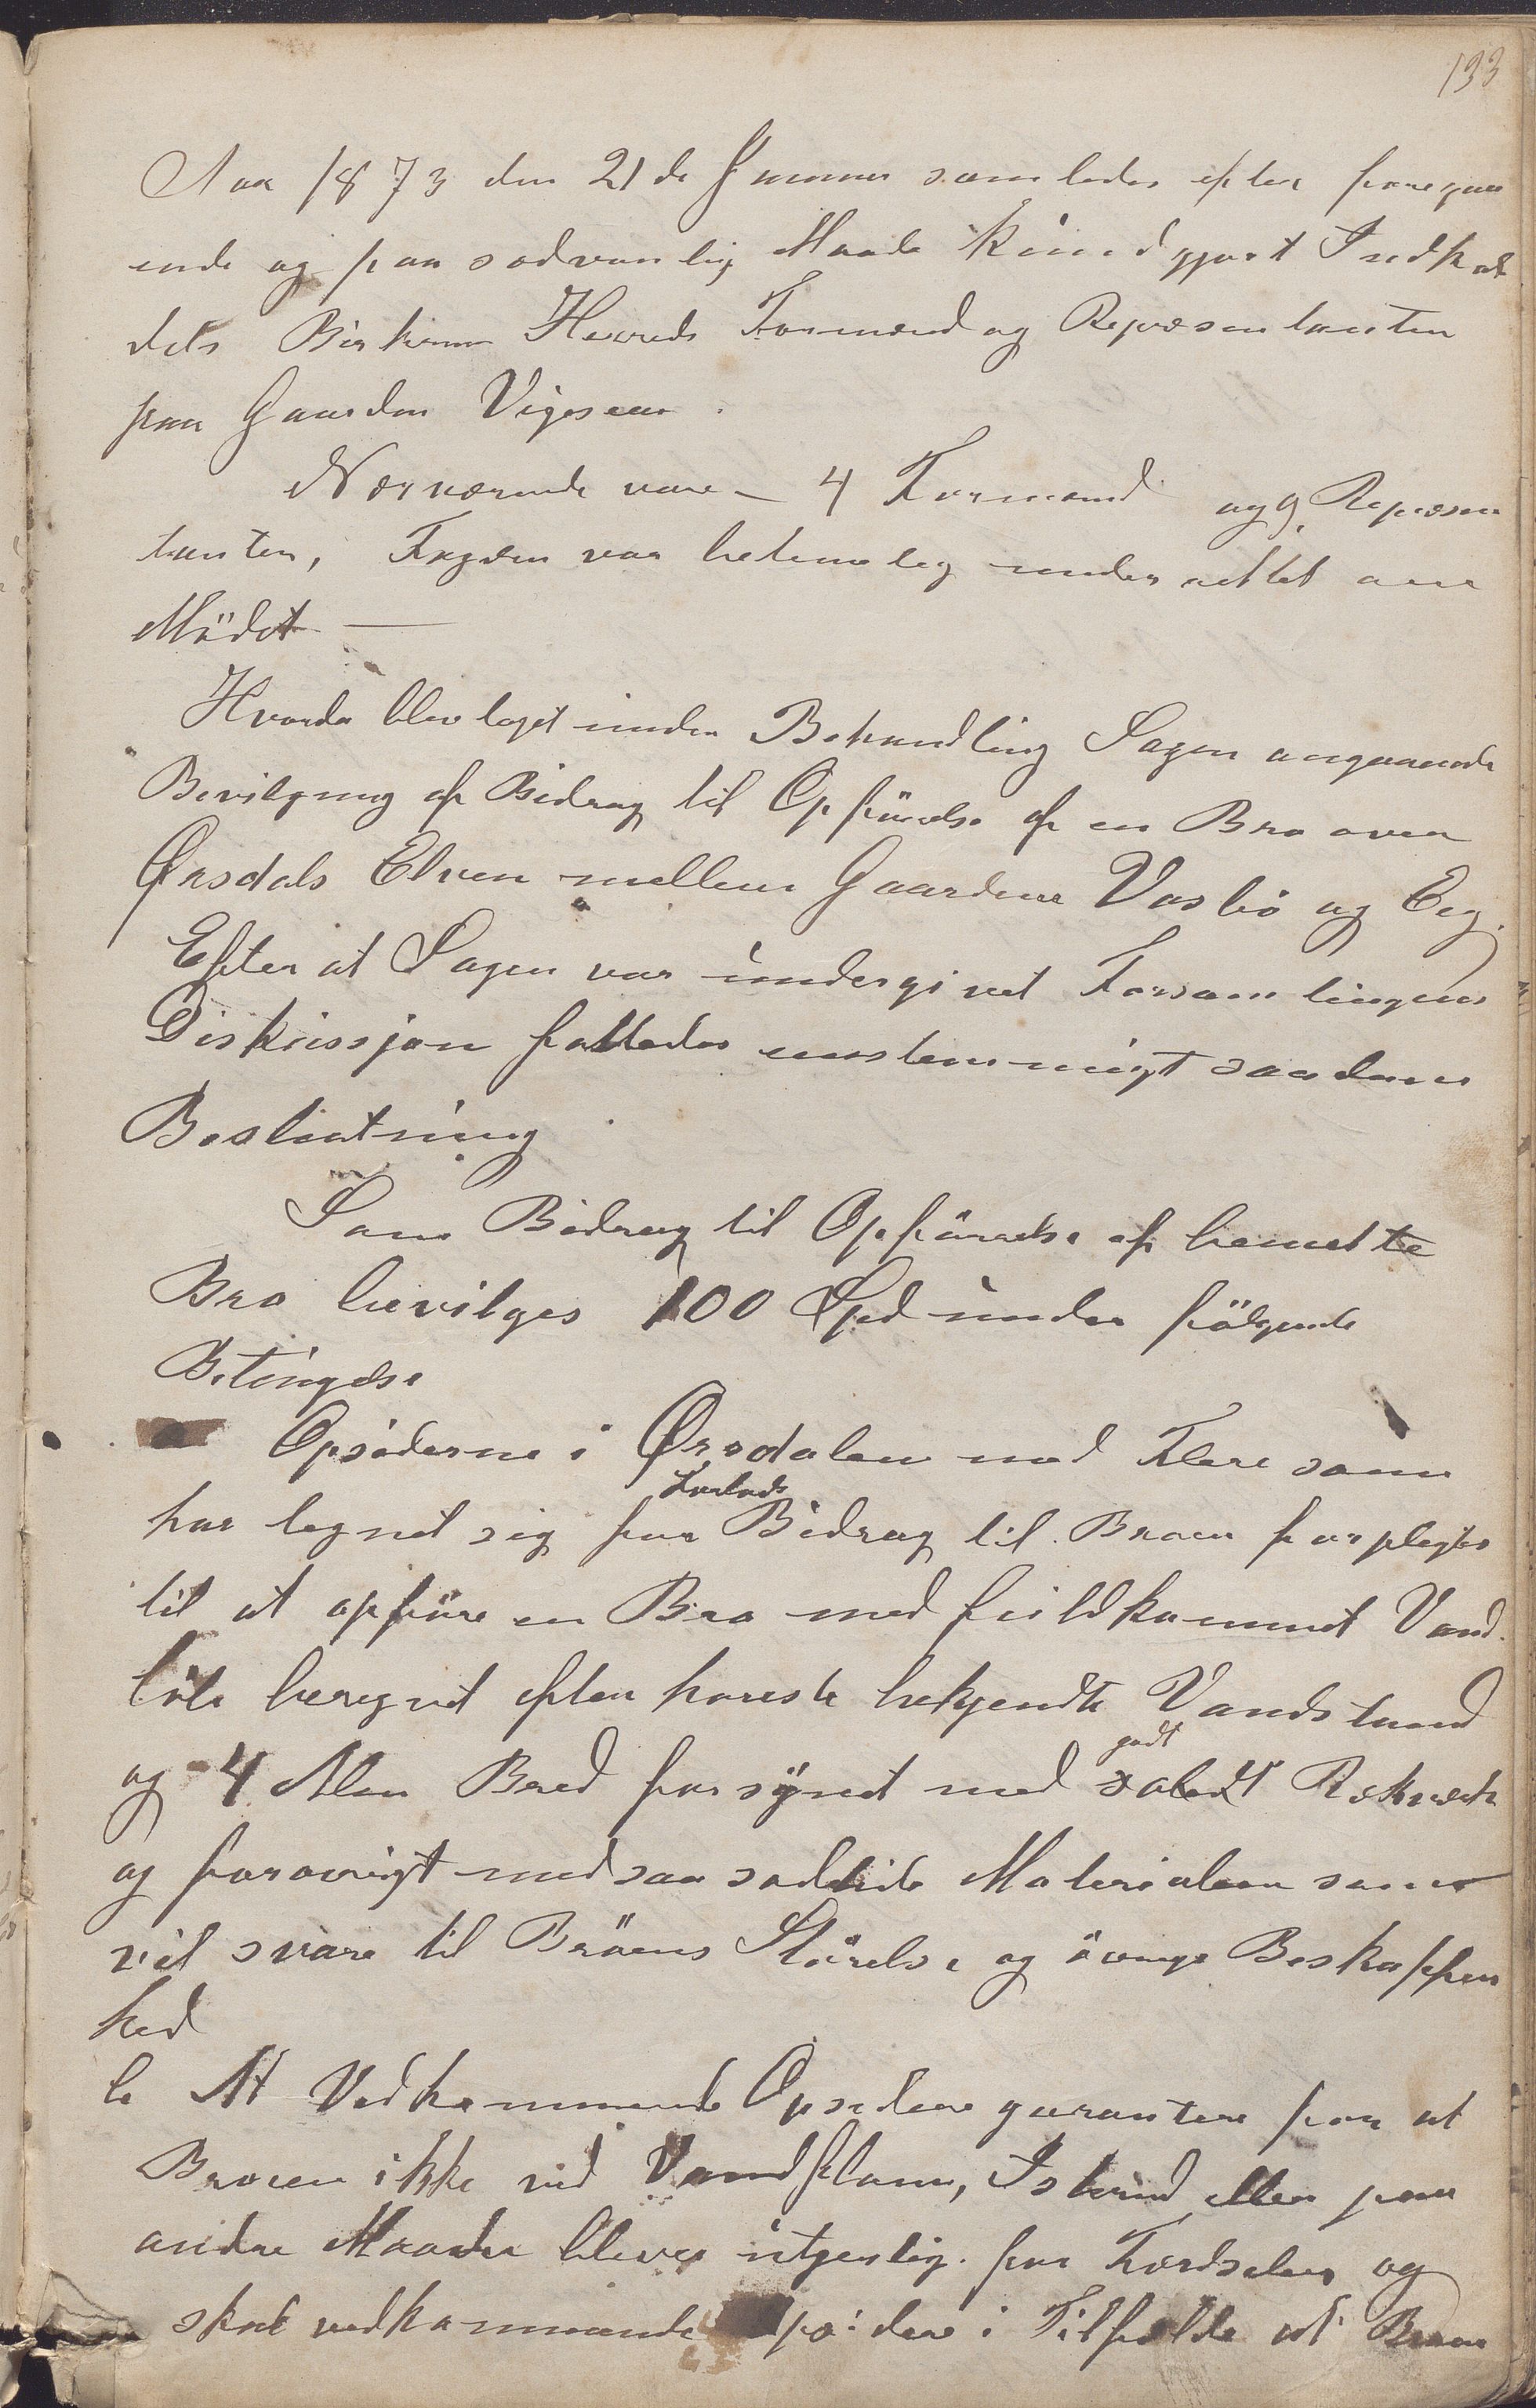 133
Aar 1873 den 21de Januar samledes efter foregaa
ende og paa sedvanlig Maade kundgjort Indkal
dels Birkrem Herreds Formænd og Repræsentanter
paa Gaarden Vigesaa.
Nærværende vare 4 Formænd og 9 Repræsen
tanter, Fogden var betimelig underrettet om
Mödet —
Hvorda blev taget under Behandling Sagen angaaende
Bevilgning af Bidrag til Opförelse af en Bro over
Ørsdals Elven mellem Gaardene Vasbö og Eeg.
Efter at Sagen var undergivet Forsamlingens
Diskussjon fattedes enstemmigt saadan
Beslutning
Som Bidrag til Opförelse af bemeldte
Bro bevilges 100 Spd under fölgende
Betingelse
a Opsiderne i Ørsdalen med Flere som
har tegnet sig for Bidrag til Broen forpligtes
til at opföre en Bro med fuldkommet Vand
löb beregnet efter höieste bekjendte Vandstand
godt
og 4 Alen Bred forsynet med solidt Rekverk
og forovrigt med saa soldide Materialer som
vil svare til Bröens Störelse og övrige Beskaffen
hed
b At Vedkommende Opsidere garantere for at
Broen ikke ved Vandflom, eller paa
andre Maader bliver utjenlig for Færdselen og
skal vedkommende Opsidere i Tilfælde at Broen